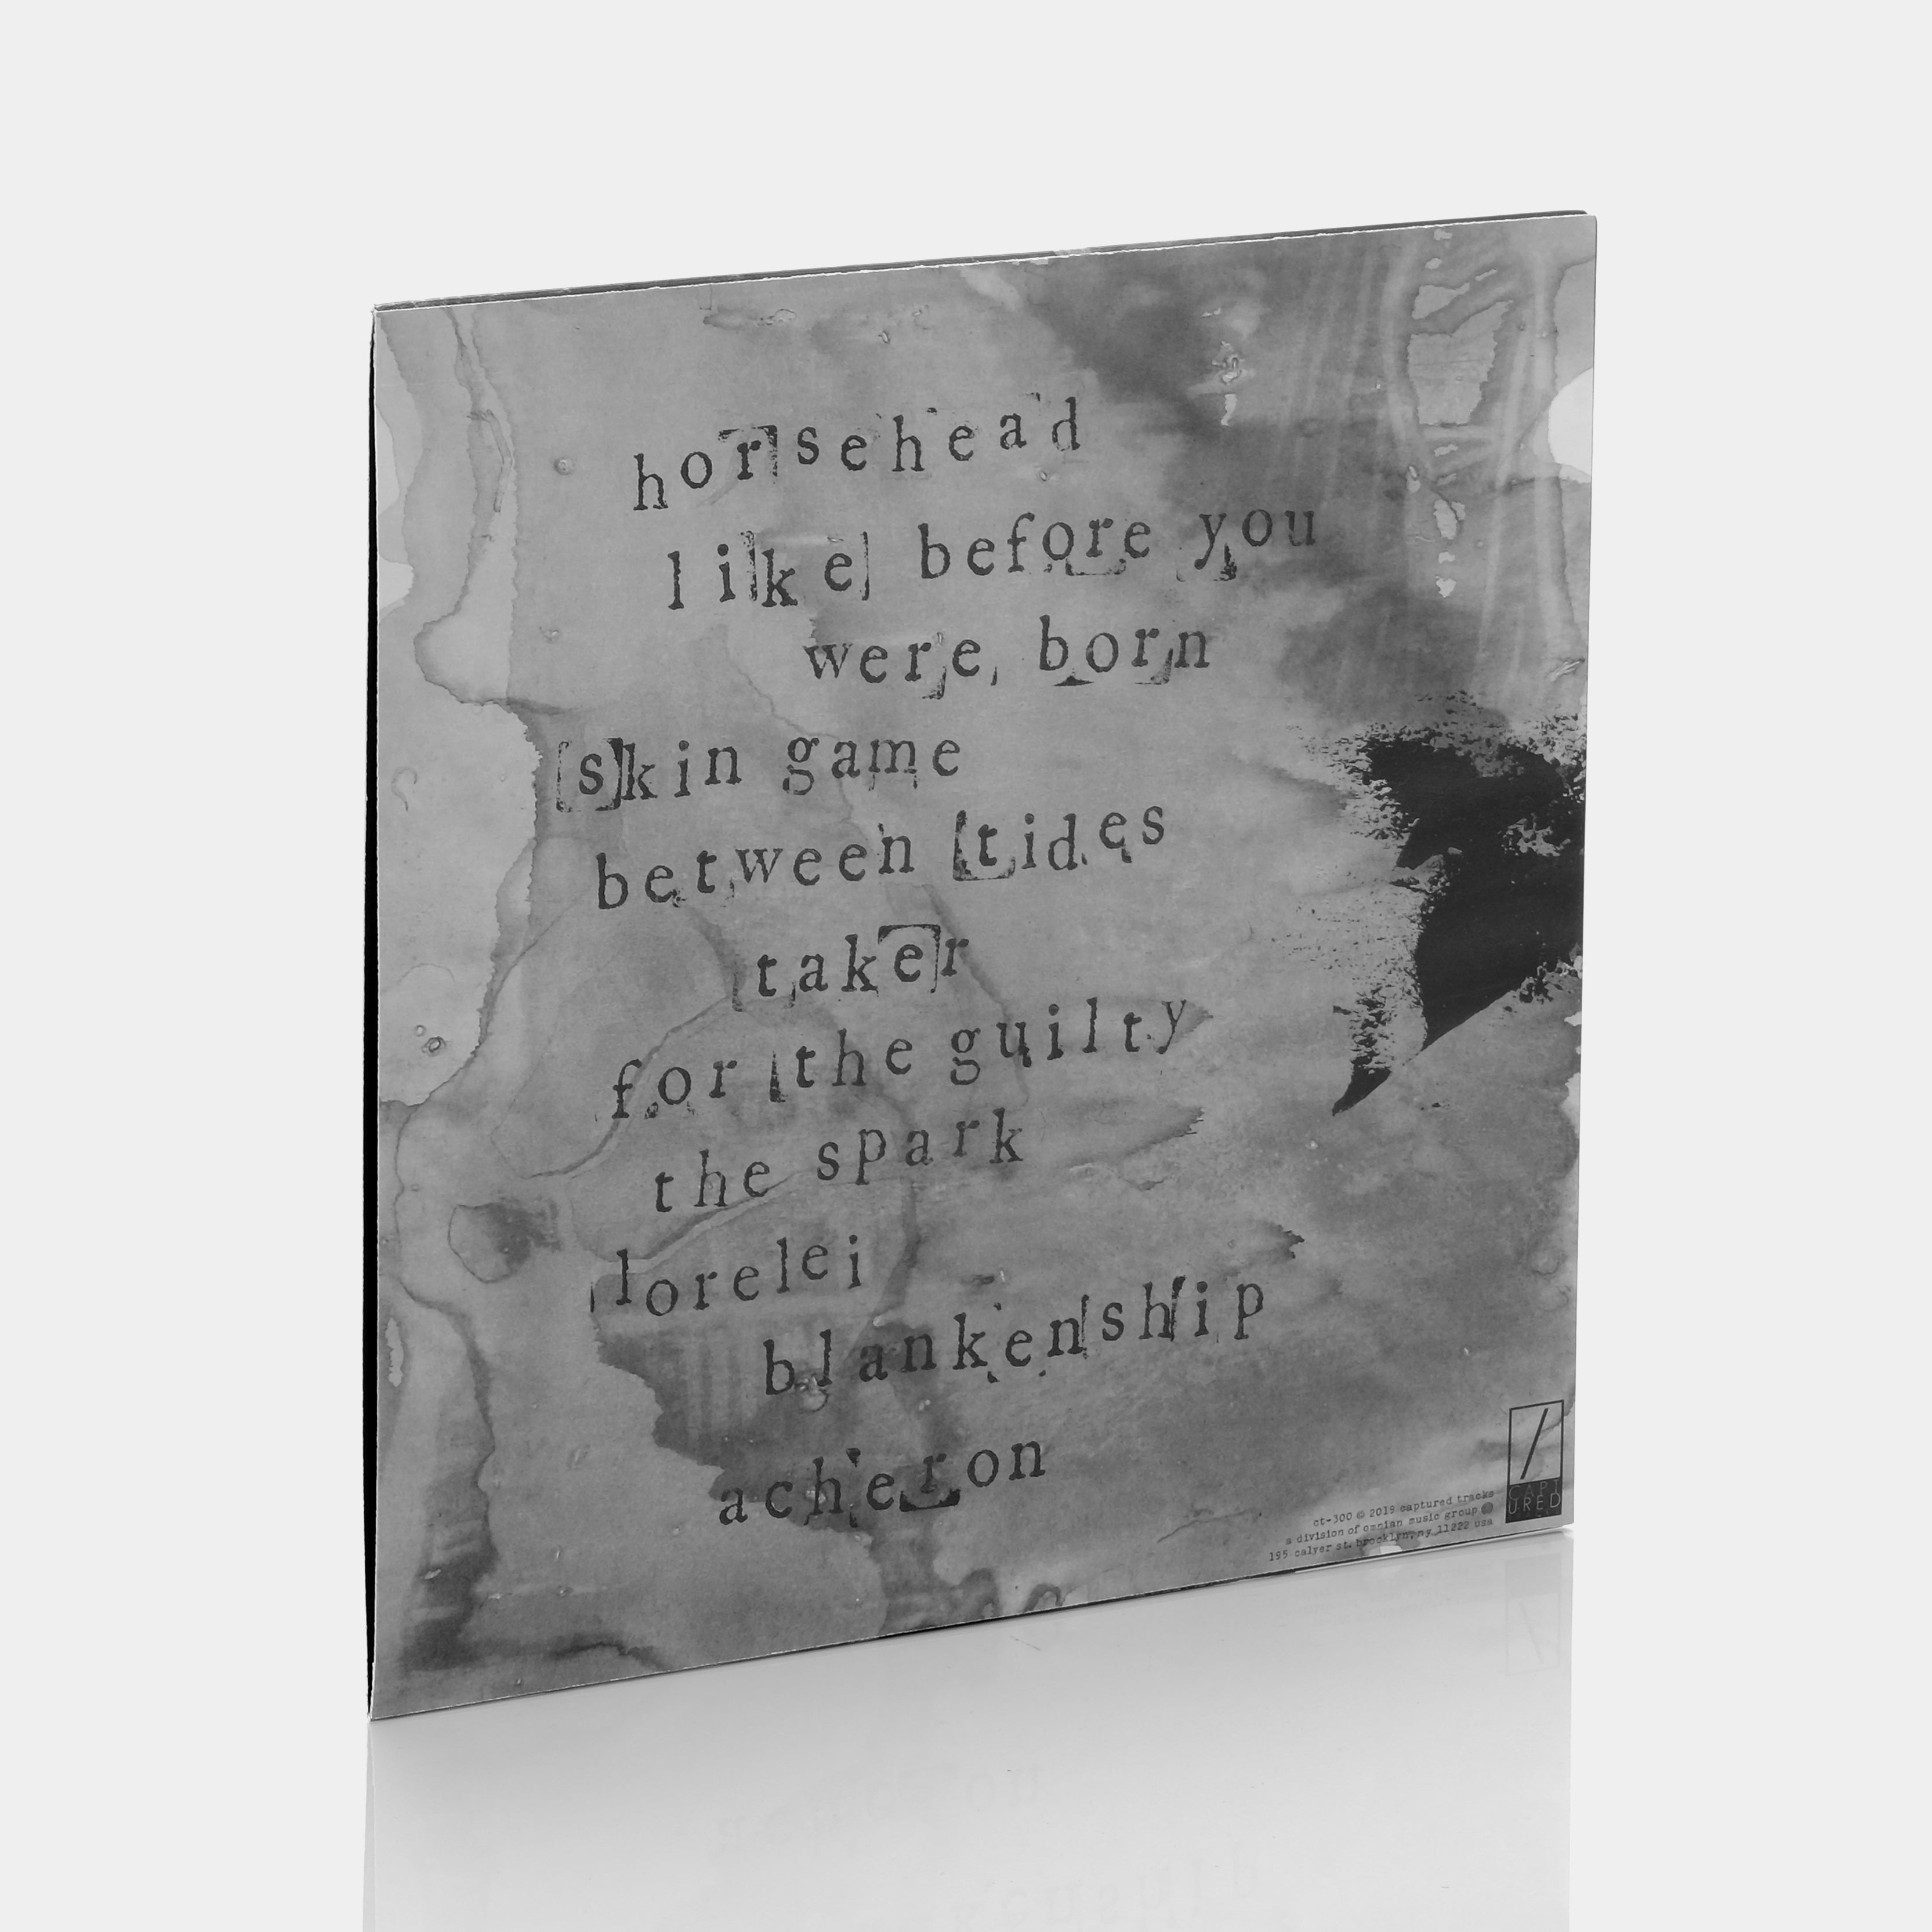 horsehead
like before you
were born
skin game
between tides
taker
for the guilty
the spark
lorelei
blankenship
acheron
ct-300 © 2019 captured tracks
a division of omnian music group
195 calyer st. brooklyn, ny 11222 usa
CAPT
URED